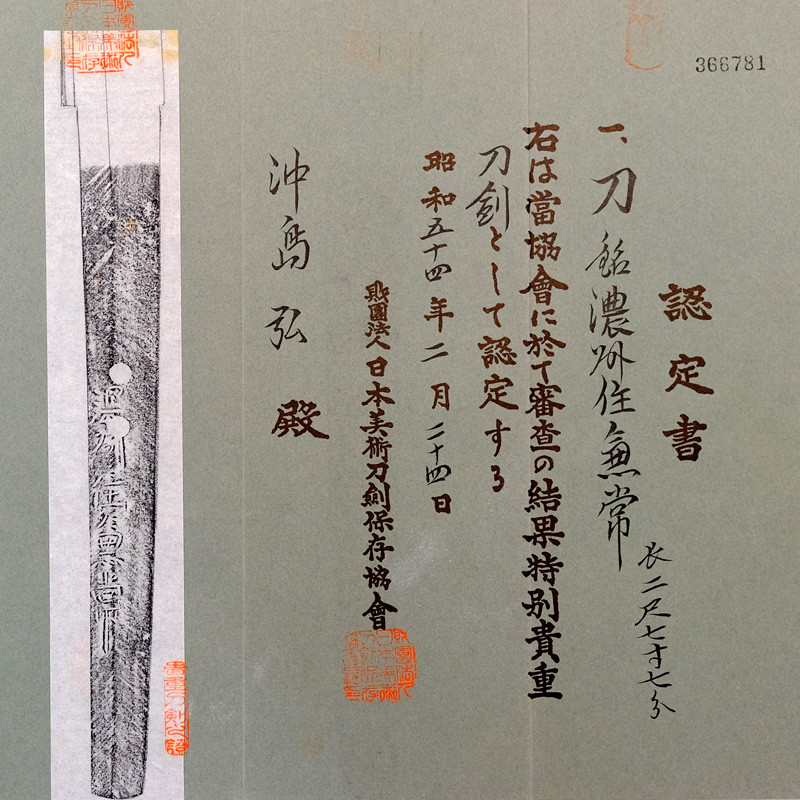 366781
認定書
一、刀 銘 濃州住兼常
長二尺七寸七分
右は當協會に於て審査の結果特別貴重
刀剣として認定する
昭和五十四年二月二十四日
財團法人日本美術刀劍保存協會
沖島弘殿
濃州住人兼常